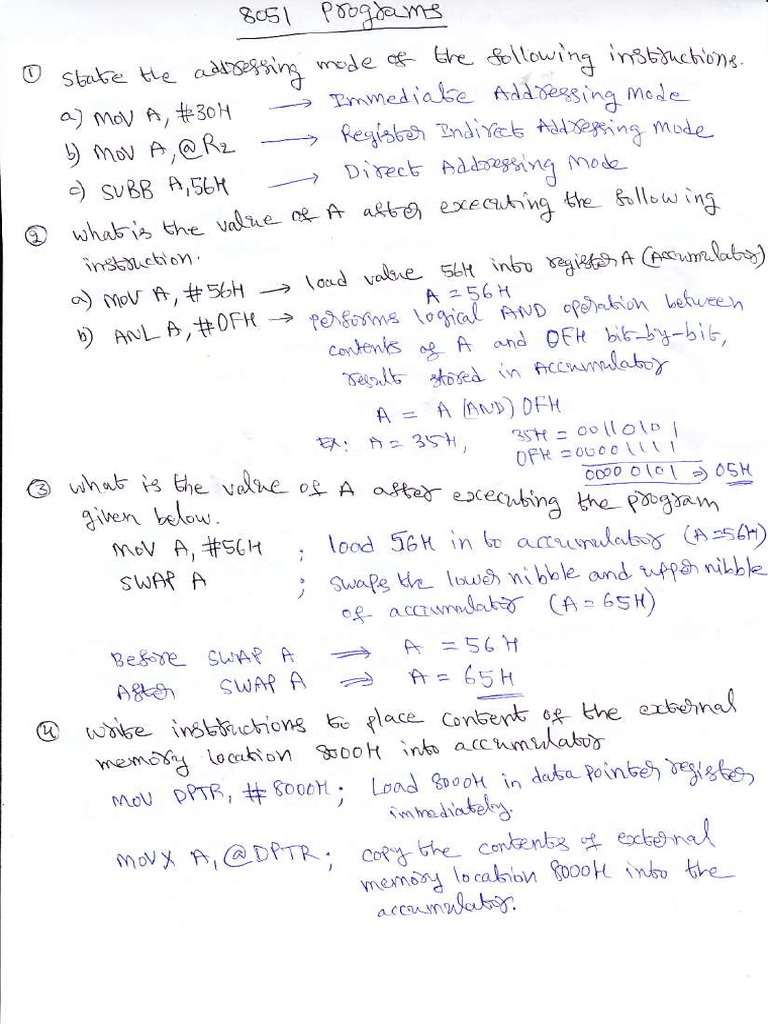 8051 Programs
① State the addressing mode of the following instructions.
a) MOV A, #30H → Immediate Addressing Mode
b) MOV A, @R2 → Register Indirect Addressing Mode
c) SUBB A,56H → Direct Addressing Mode
② What is the value of A after executing the following
instruction.
a) MOV A, #56H → load value 56H into register A (Accumulator)
A = 56H
b) ANL A, #0FH → Performs logical AND operation between
contents of A and 0FH bit-by-bit,
result stored in Accumulator
A = A (AND) 0FH
Ex: A = 35H, 35H = 00110101
0FH = 00001111
0000 0101 ⇒ 05H
③ What is the value of A after executing the program
given below.
MOV A, #56H ; load 56H in to accumulator (A=56H)
SWAP A ; swaps the lower nibble and upper nibble
of accumulator (A = 65H)
Before SWAP A ⇒ A = 56H
After SWAP A ⇒ A = 65H
④ Write instructions to place content of the external
memory location 8000H into accumulator
MOV DPTR, #8000H ; Load 8000H in data pointer register
immediately.
MOVX A, @DPTR ; copy the contents of external
memory location 8000H into the
accumulator.